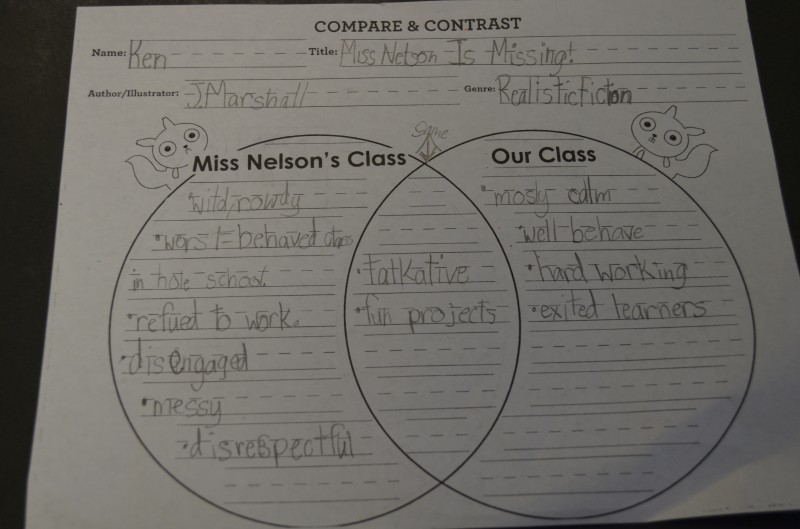 COMPARE & CONTRAST
Name: Ken Title: Miss Nelson Is Missing!
Author/Illustrator: J.Marshall Genre: Realisticfiction
Same
Miss Nelson's Class
Our Class
wild, rowdy
•worst-behaved class
in hole school.
•refued to work.
•disengaged
•messy
•disrespectful
•talkative
•fun projects
•mosly calm
•well-behave
•hard working
•exited learners